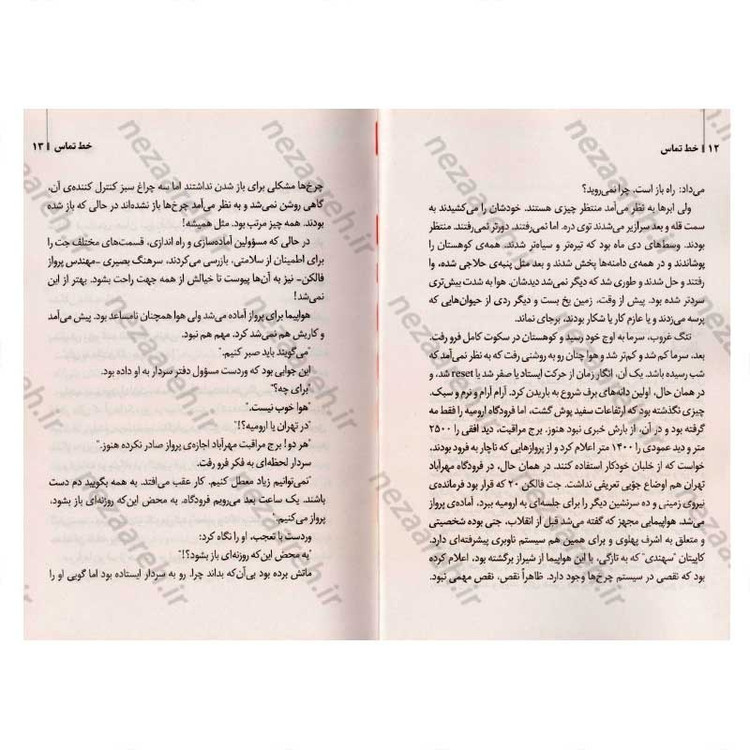 ۱۲ | خط تماس
می‌داد: راه باز است. چرا نمی‌روید؟
ولی ابرها به نظر می‌آمد منتظر چیزی هستند. خودشان را می‌کشیدند به
سمت قله و بعد سرازیر می‌شدند توی دره. اما نمی‌رفتند. دورتر نمی‌رفتند. منتظر
بودند. وسط‌های دی ماه بود که تیره‌تر و سیاه‌تر شدند. همه‌ی کوهستان را
پوشاندند و در همه‌ی دامنه‌ها پخش شدند و بعد مثل پنبه‌ی حلاجی شده، وا
رفتند و حل شدند و طوری شد که دیگر نمی‌شد دیدشان. هوا به شدت بیش‌تری
سردتر شده بود. پیش از وقت، زمین یخ بست و دیگر ردی از حیوان‌هایی که
پرسه می‌زدند و یا عازم کار یا شکار بودند، برجای نماند.
تنگ غروب، سرما به اوج خود رسید و کوهستان در سکوت کامل فرو رفت.
بعد، سرما کم شد و کم‌تر شد و هوا چنان رو به روشنی رفت که به نظر نمی‌آمد که
شب رسیده باشد. یک آن، انگار زمان از حرکت ایستاد یا صفر شد یا reset شد، و
در همان حال، اولین دانه‌های برف شروع به باریدن کرد. آرام آرام و نرم و سبک.
چیزی نگذشته بود که ارتفاعات سفید پوش گشت، اما فرودگاه ارومیه را فقط مه
گرفته بود و در آن، از بارش خبری نبود هنوز. برج مراقبت، دید افقی را ۲۵۰۰
متر و دید عمودی را ۱۴۰۰ متر اعلام کرد و از پروازهایی که ناچار به فرود بودند،
خواست که از خلبان خودکار استفاده کنند. در همان حال، در فرودگاه مهرآباد
تهران هم اوضاع جوّی تعریفی نداشت. جت فالکن ۲۰ که قرار بود فرمانده‌ی
نیروی زمینی و ده سرنشین دیگر را برای جلسه‌ای به ارومیه ببرد، آماده‌ی پرواز
می‌شد. هواپیمایی مجهز که گفته می‌شد قبل از انقلاب، جتی بوده شخصیتی
و متعلق به اشرف پهلوی و برای همین هم سیستم ناوبری پیشرفته‌ای دارد.
کاپیتان "سهندی" که به تازگی، با این هواپیما از شیراز برگشته بود، اعلام کرده
بود که نقصی در سیستم چرخ‌ها وجود دارد. ظاهراً نقص، نقص مهمی نبود.
خط تماس | ۱۳
چرخ‌ها مشکلی برای باز شدن نداشتند اما سه چراغ سبز کنترل کننده‌ی آن،
گاهی روشن نمی‌شد و به نظر می‌آمد چرخ‌ها باز نشده‌اند در حالی که باز شده
بودند. همه چیز مرتب بود. مثل همیشه!
در حالی که مسؤولین آماده‌سازی و راه اندازی، قسمت‌های مختلف جت را
برای اطمینان از سلامتی، بازرسی می‌کردند، سرهنگ بصیری -مهندس پرواز
فالکن- نیز به آن‌ها پیوست تا خیالش از همه جهت راحت بشود. بهتر از این
نمی‌شد!
هواپیما برای پرواز آماده می‌شد ولی هوا همچنان نامساعد بود. پیش می‌آمد
و کاریش هم نمی‌شد کرد. مهم هم نبود.
"می‌گویند باید صبر کنیم."
این جوابی بود که وردست مسؤول دفتر سردار به او داده بود.
"برای چه؟"
"هوا خوب نیست."
"در تهران یا ارومیه؟!"
"هر دو! برج مراقبت مهرآباد اجازه‌ی پرواز صادر نکرده هنوز."
سردار لحظه‌ای به فکر فرو رفت.
"نمی‌توانیم زیاد معطل کنیم. کار عقب می‌افتد. به همه بگویید دم دست
باشند. یک ساعت بعد می‌رویم فرودگاه. به محض این‌که روزنه‌ای باز بشود،
پرواز می‌کنیم."
وردست با تعجب، او را نگاه کرد:
"به محض این‌که روزنه‌ای باز بشود؟!"
ماتش برده بود بی‌آن‌که بداند چرا. رو به سردار ایستاده بود اما گویی او را
nezaareh.ir